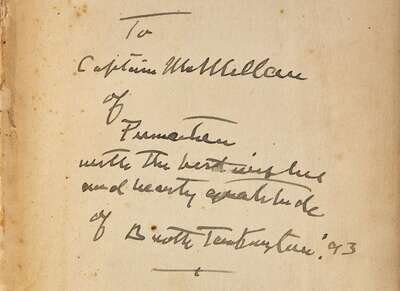 To
Captain McMillan
of
Princeton
with the best wishes
and hearty gratitude
of Booth Tarkington. '93